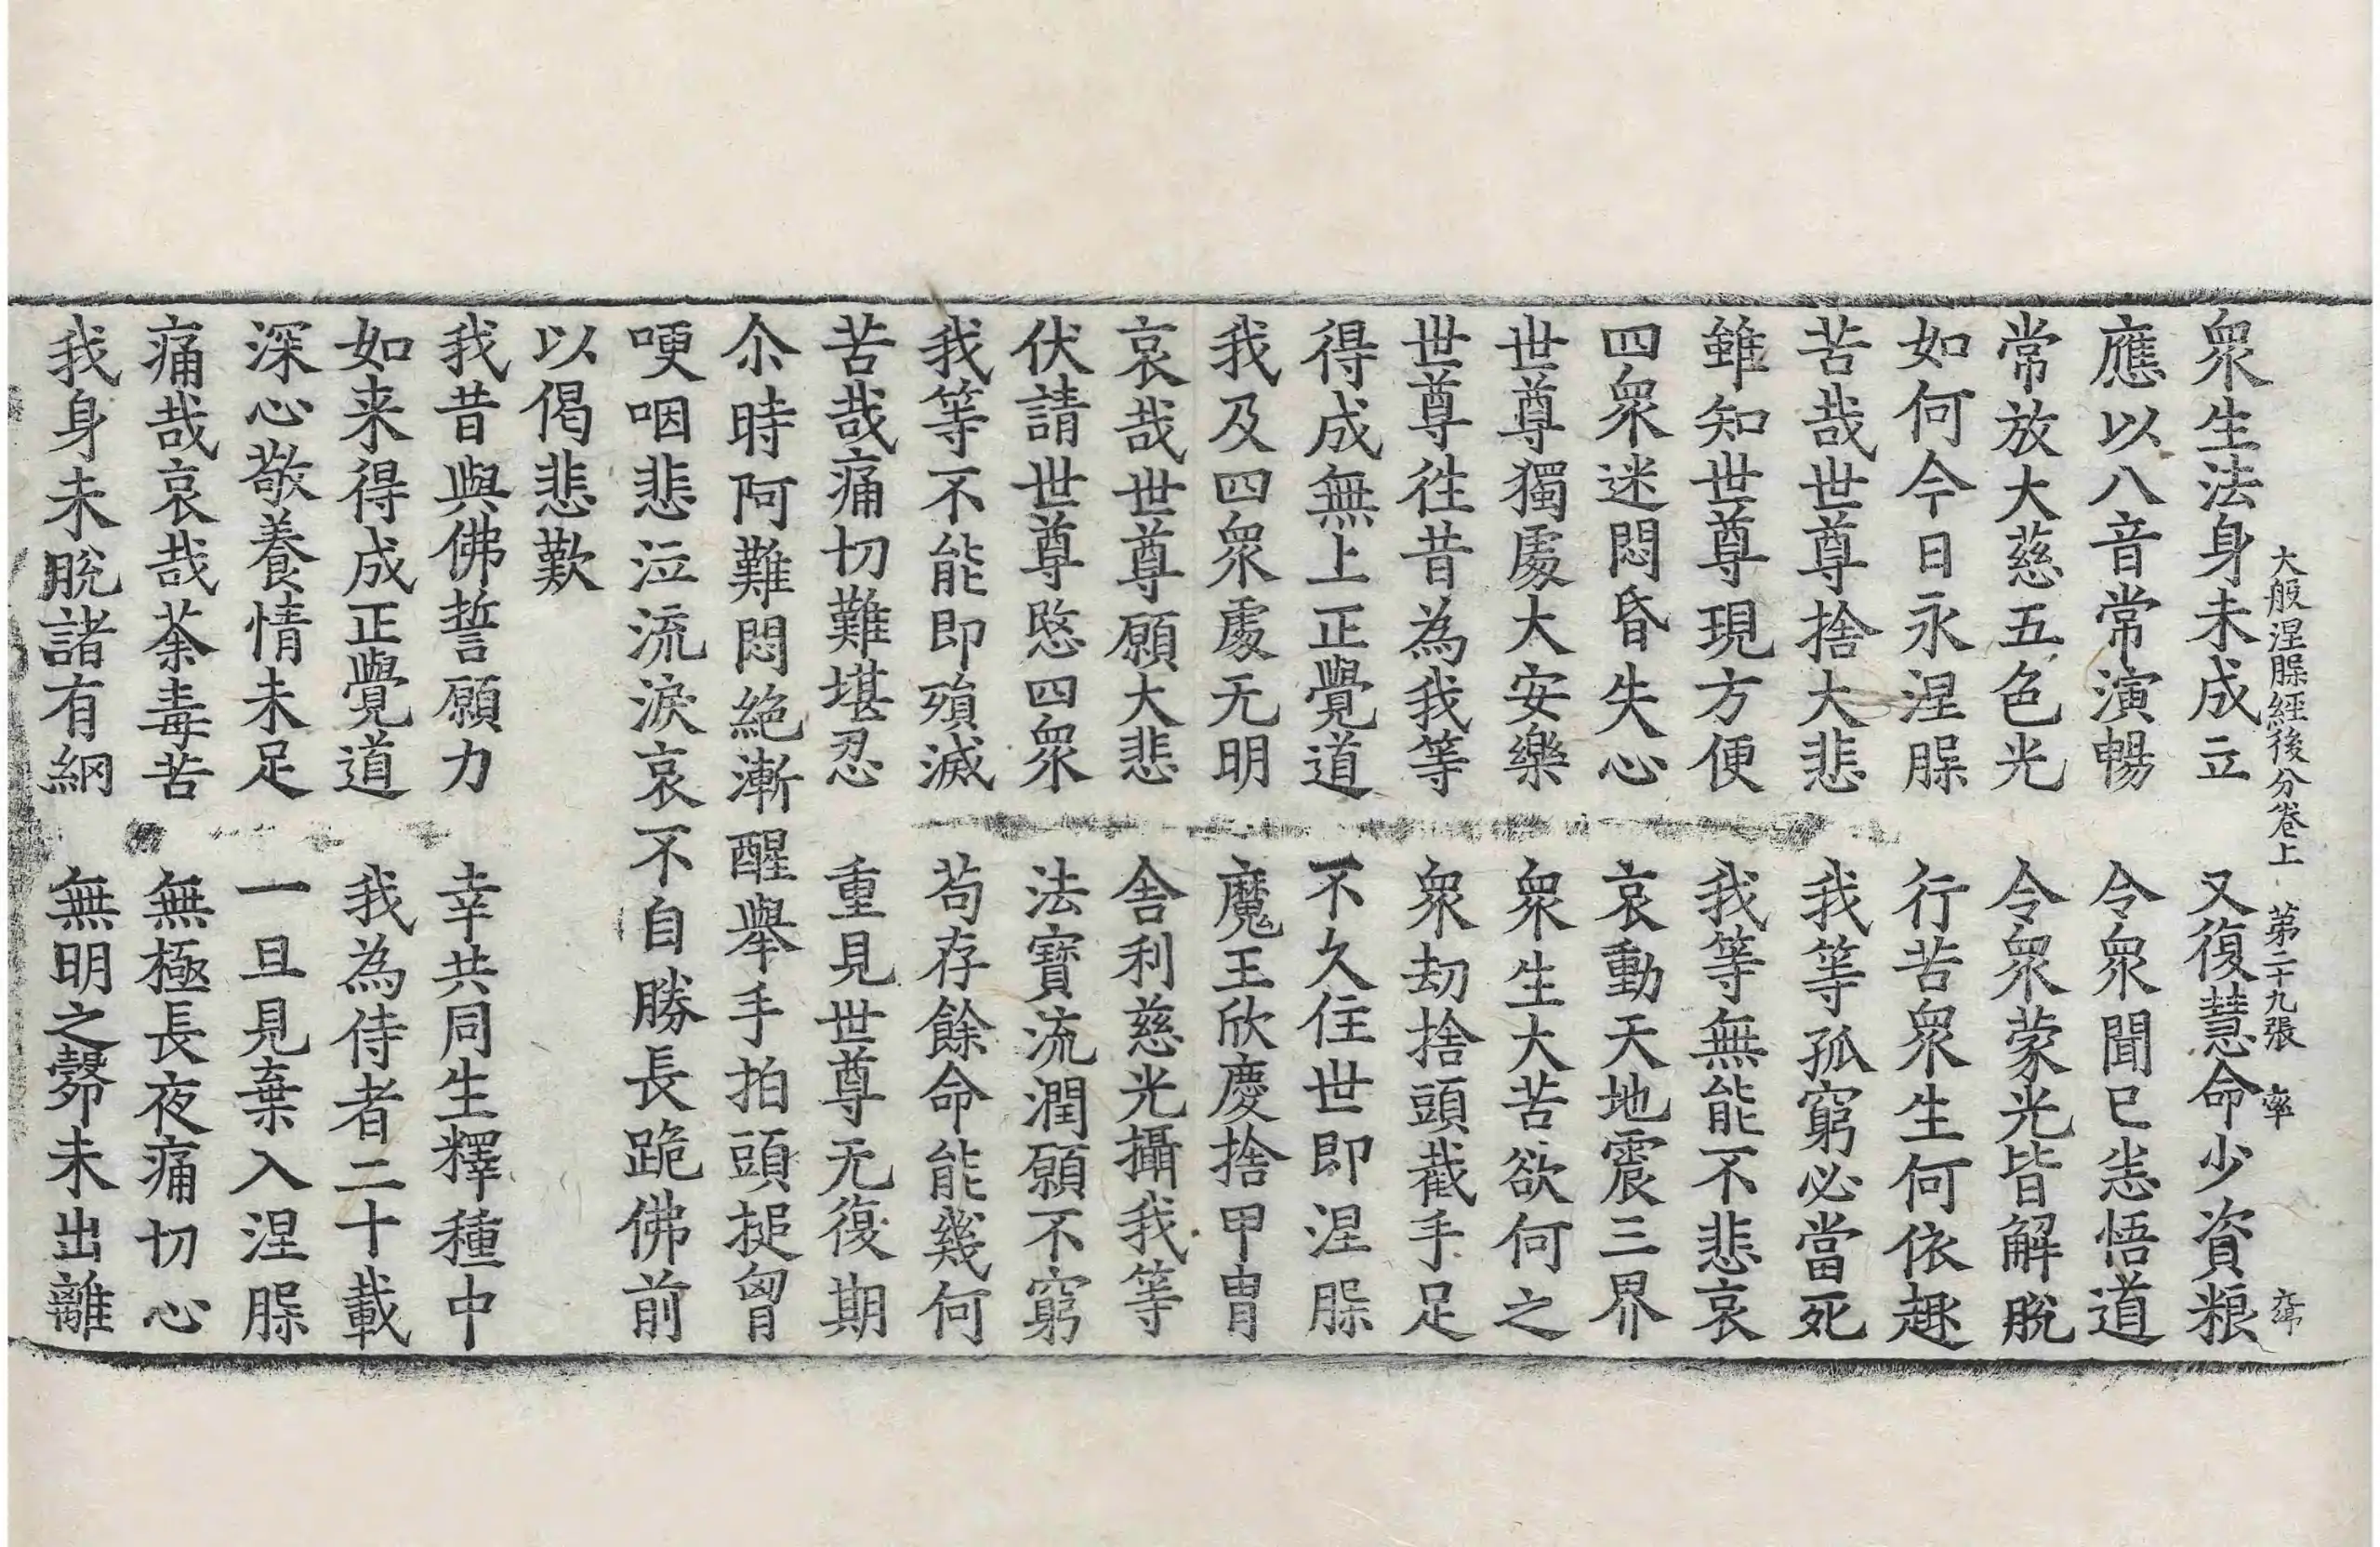 大般涅槃經後分卷上 第二十九張 率
眾生法身未成立 又復慧命少資粮
應以八音常演暢 令眾聞已恙悟道
常放大慈五色光 令眾蒙光皆解脫
如何今日永涅槃 行苦眾生何依趣
苦哉世尊捨大悲 我等孤窮必當死
雖知世尊現方便 我等無能不悲哀
四眾迷悶昏失心 哀動天地震三界
世尊獨處大安樂 眾生大苦欲何之
世尊徃昔為我等 眾劫捨頭截手足
得成無上正覺道 不久住世即涅槃
我及四眾處无明 魔王欣慶捨甲冑
哀哉世尊願大悲 舍利慈光攝我等
伏請世尊愍四眾 法寶流潤願不窮
我等不能即殞滅 苟存餘命能幾何
苦哉痛切難堪忍 重見世尊无復期
尒時阿難悶絕漸醒舉手拍頭搥胷
哽咽悲泣流淚哀不自勝長跪佛前
以偈悲歎
我昔與佛誓願力 幸共同生釋種中
如来得成正覺道 我為侍者二十載
深心敬養情未足 一旦見棄入涅槃
痛哉哀哉荼毒苦 無極長夜痛切心
我身未脫諸有網 無明之㲉未出離